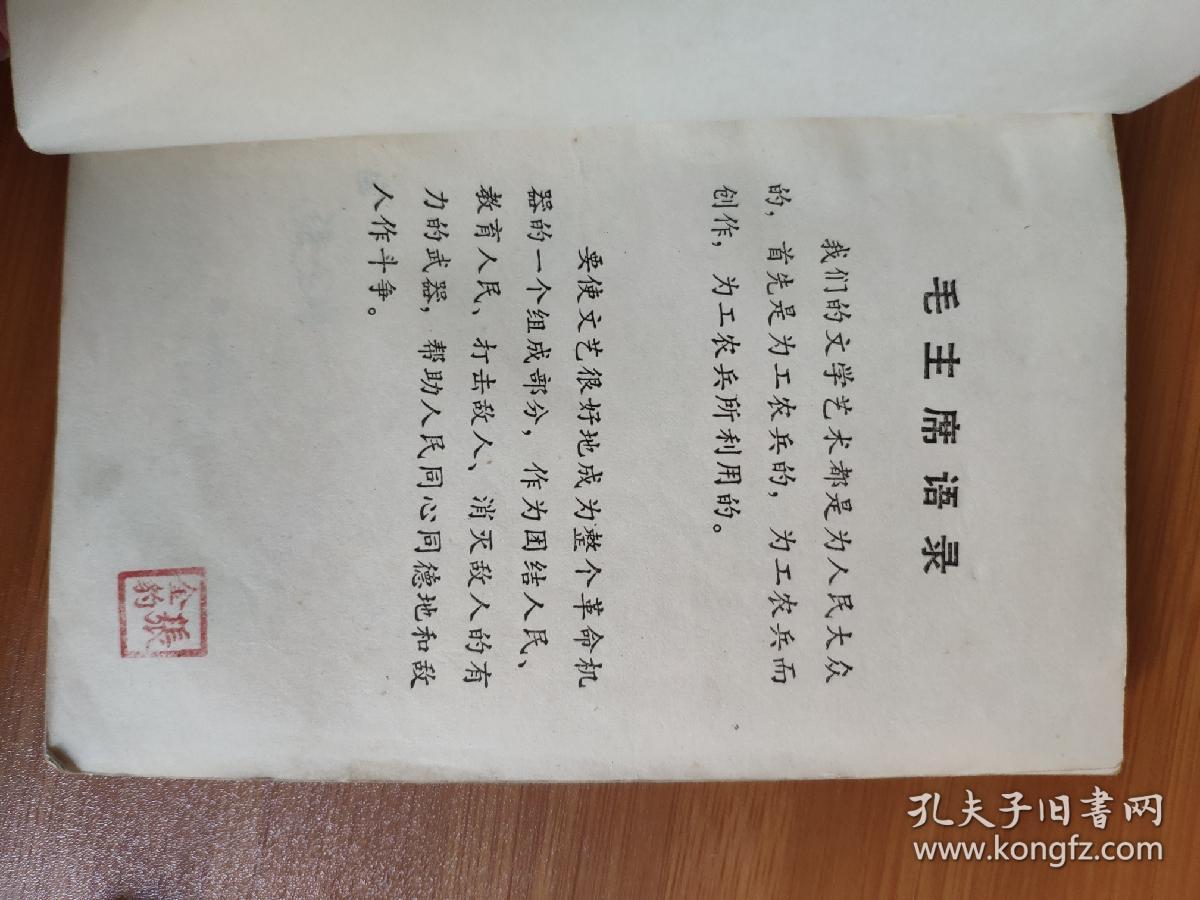 毛主席语录
我们的文学艺术都是为人民大众
的，首先是为工农兵的，为工农兵而
创作，为工农兵所利用的。
要使文艺很好地成为整个革命机
器的一个组成部分，作为团结人民、
教育人民、打击敌人、消灭敌人的有
力的武器，帮助人民同心同德地和敌
人作斗争。
張金豹
孔夫子旧書网
www.kongfz.com